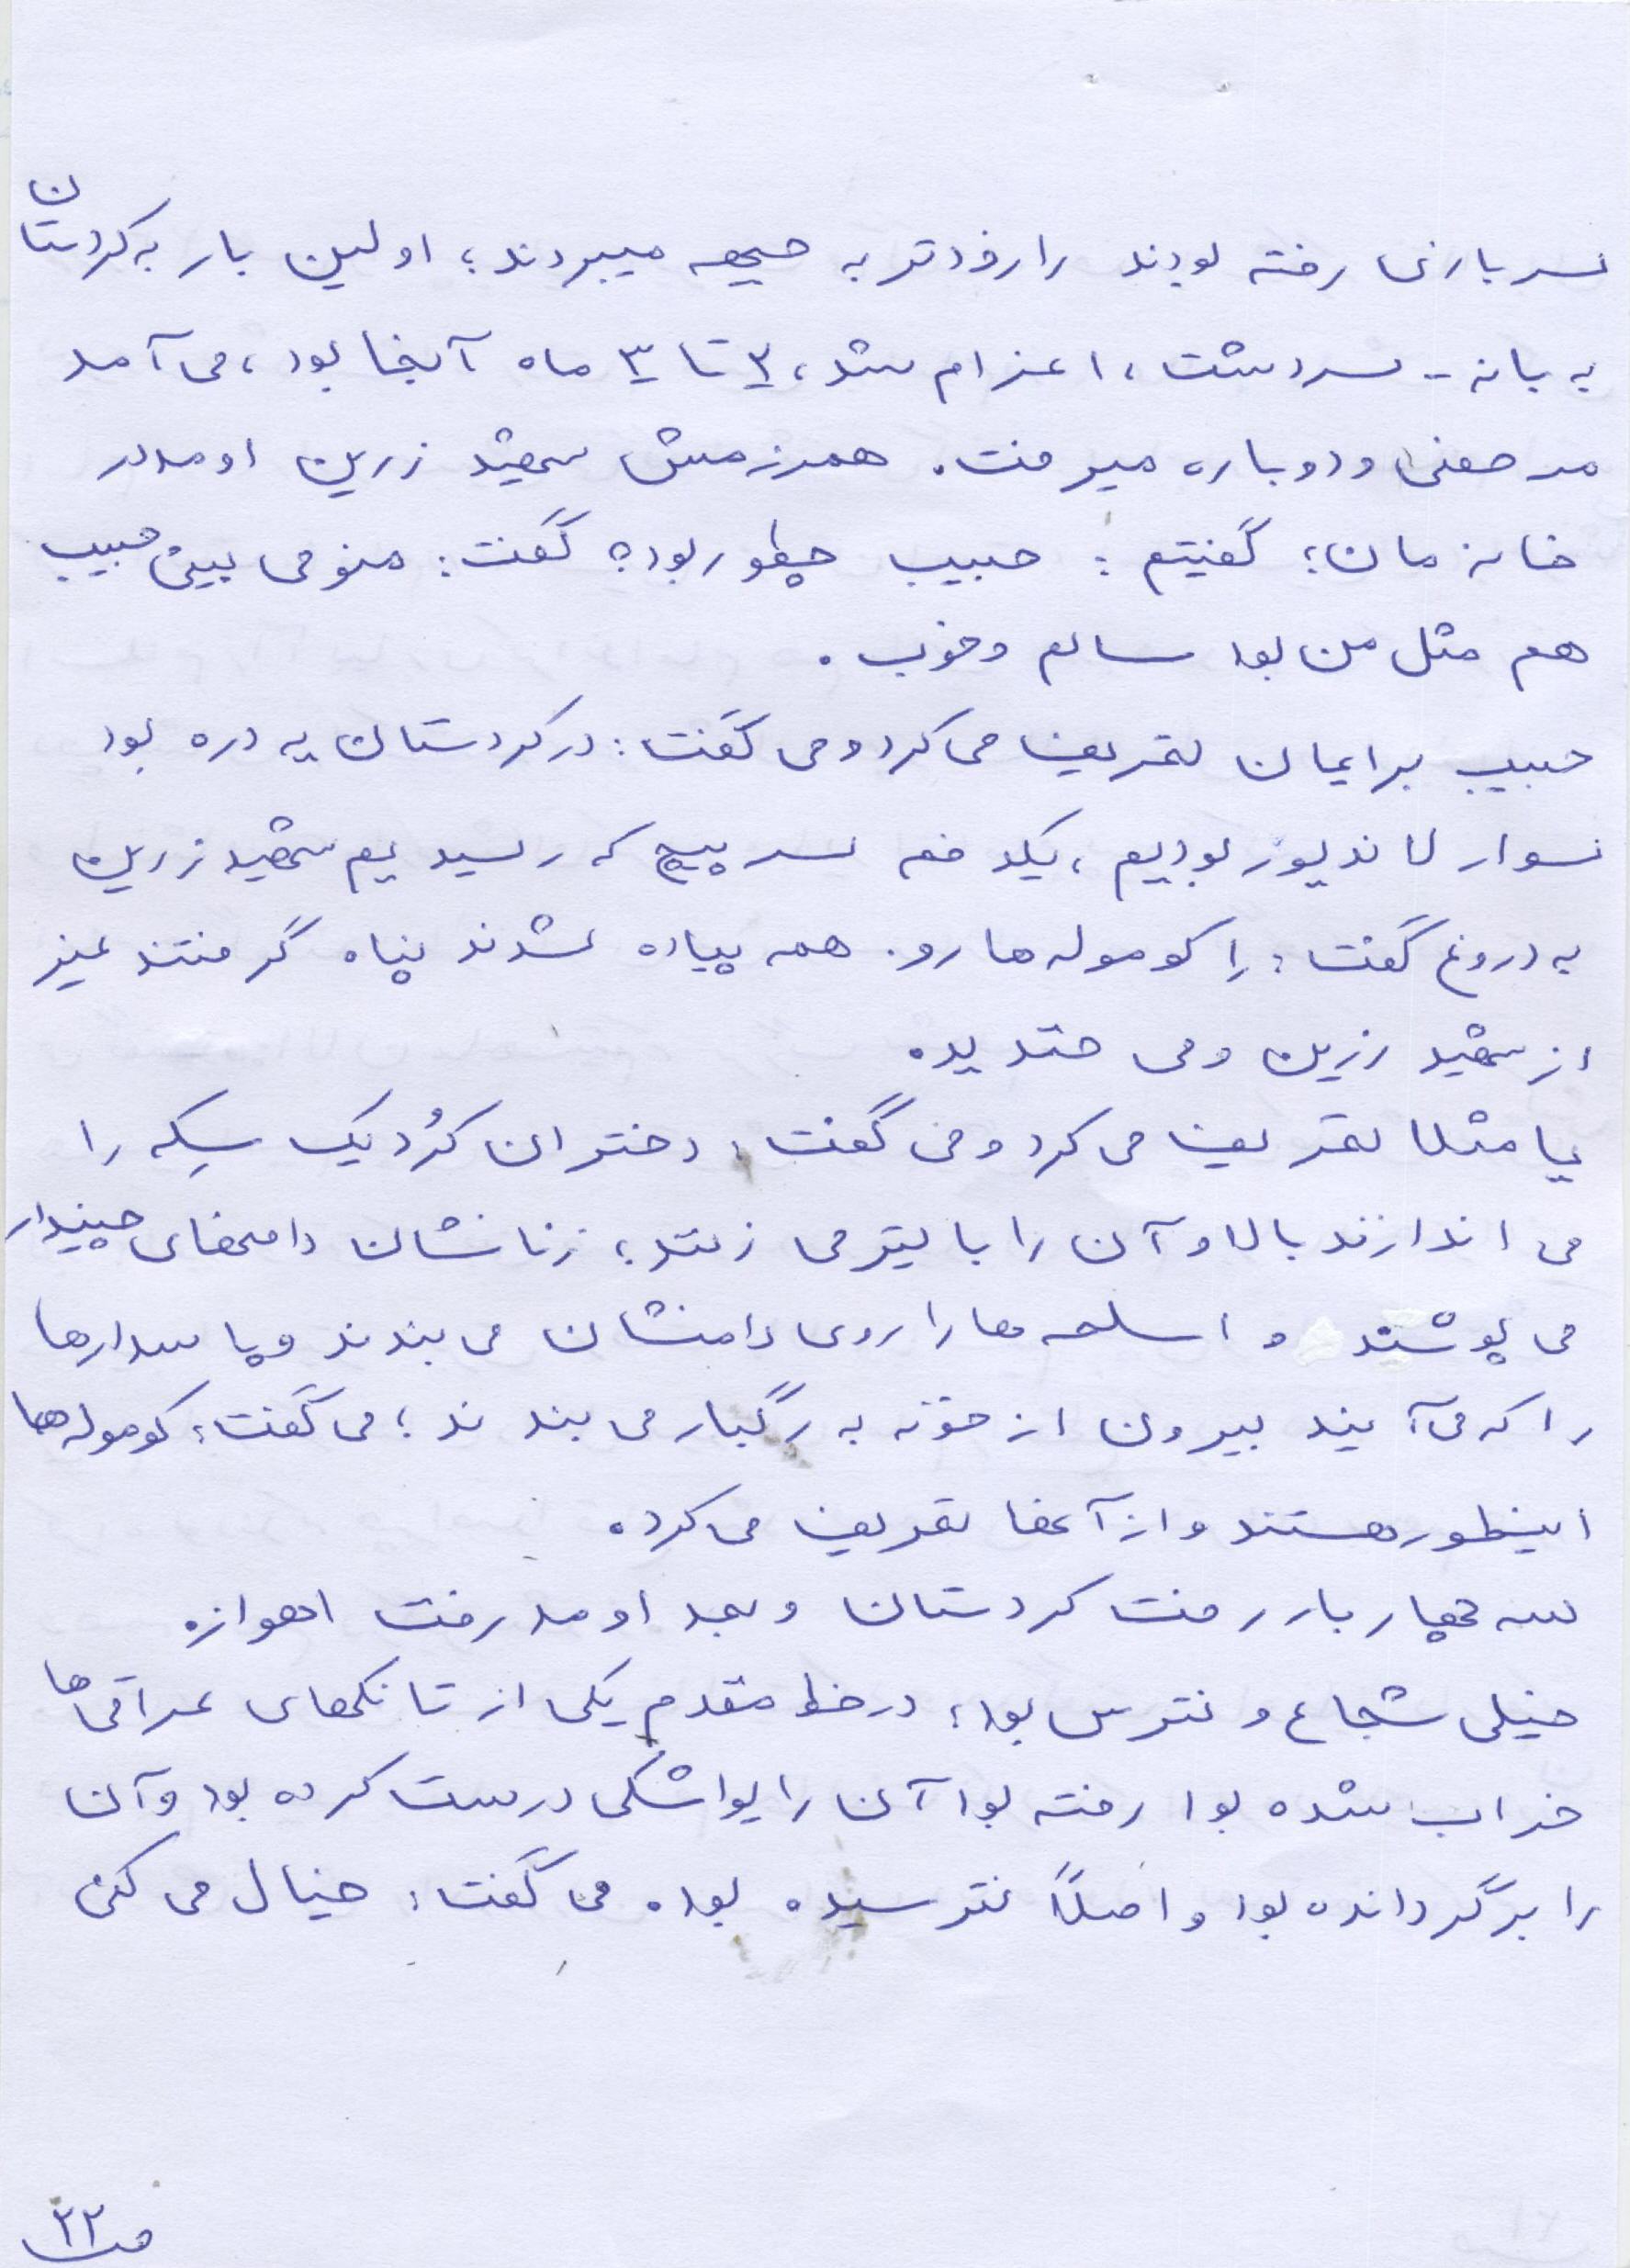 سربازی رفته بودند را زودتر به جبهه میبردند؛ اولین بار به کردستان
به بانه - سردشت، اعزام شد، ۲ تا ۳ ماه آنجا بود، می آمد
مرخصی و دوباره میرفت. همرزمش شهید زرین اومد در
خانه مان؛ گفتیم: حبیب چطور بود؟ گفت: منو می بینی حبیب
هم مثل من بود سالم و خوب.
حبیب برایمان تعریف می کرد و می گفت: در کردستان یه دره بود
سوار لاندیور بودیم، یکدفعه سر پیچ که رسیدیم شهید زرین
به دروغ گفت: کوموله ها رو. همه پیاده شدند پناه گرفتند غیر
از شهید زرین و می خندید.
یا مثلا تعریف می کرد و می گفت: دختران کُرد یک سکه را
می اندازند بالا و آن را با تیر می زنند؛ زنانشان دامنهای چیندار
می پوشند و اسلحه ها را روی دامنشان می بندند و پاسدارها
را که می آیند بیرون از خونه به رگبار می بندند؛ می گفت: کوموله ها
اینطور هستند و از آنها تعریف می کرد.
سه چهار بار رفت کردستان و بعد اومد رفت اهواز.
خیلی شجاع و نترس بود؛ در خط مقدم یکی از تانکهای عراقی ها
خراب شده بود رفته بود آن را یواشکی درست کرده بود و آن
را برگردانده بود و اصلاً نترسیده بود. می گفت: خیال می کنی
ص ۲۲